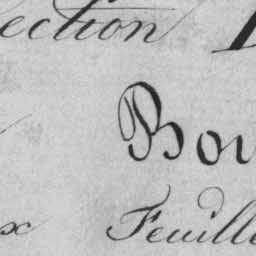 ection
Bou
x Feuille